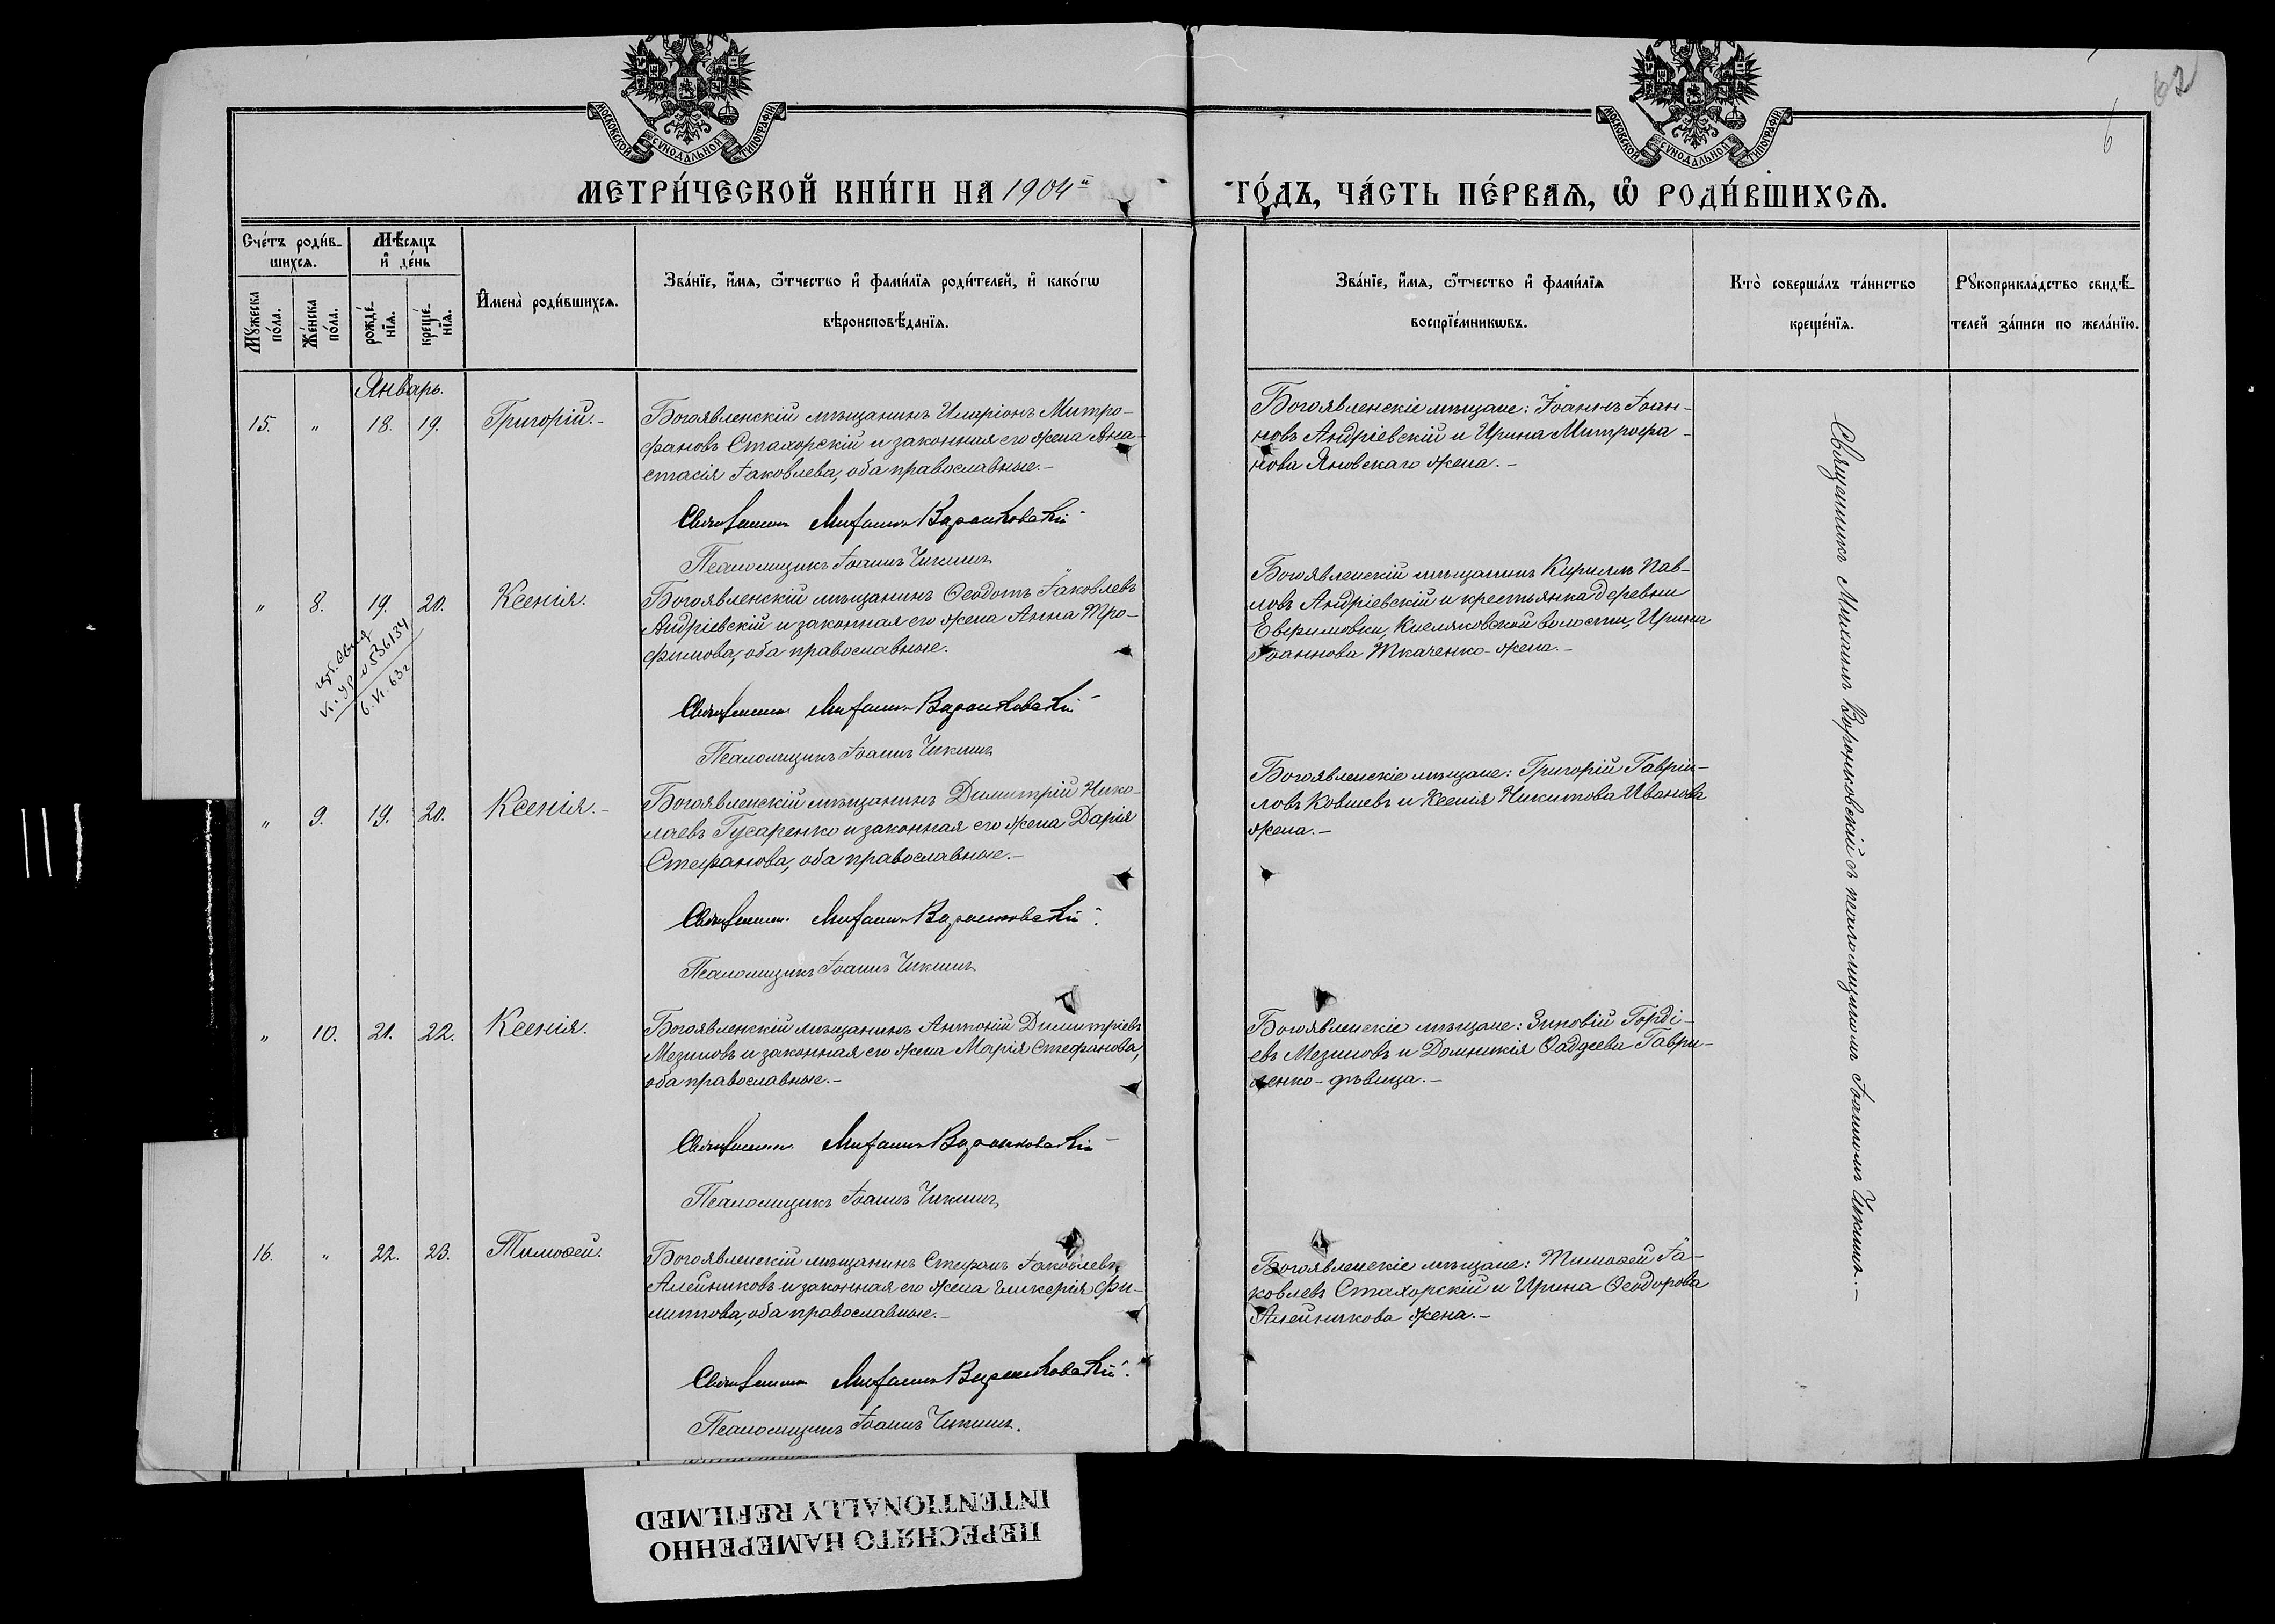 МОСКОВСКОЙ СУНОДАЛЬНОЙ ТИПОГРАФІИ
МОСКОВСКОЙ СУНОДАЛЬНОЙ ТИПОГРАФІИ
62
6
МЕТРИ́ЧЕСКОЙ КНИ́ГИ НА 1904й
ГО́ДЪ, ЧА́СТЬ ПЕ́РВАѦ, Ѡ҆ РОДИ́ВШИХСѦ.
Сче́тъ роди́в-
шихсѧ.
Мꙋ́жеска по́ла.
Же́нска по́ла.
Мѣ́сѧцъ
и҆ де́нь
рожде́-
нїѧ.
креще́-
нїѧ.
И҆мена̀ роди́вшихсѧ.
Зва́нїе, и҆́мѧ, ѻ҆́тчество и҆ фами́лїѧ роди́телей, и҆ како́гѡ
вѣроисповѣ́данїѧ.
Зва́нїе, и҆́мѧ, ѻ҆́тчество и҆ фами́лїѧ
воспрїе́мникѡвъ.
Кто̀ соверша́лъ та́инство
креще́нїѧ.
Рꙋкоприкла́дство свидѣ́-
телей за́писи по жела́нїю.
Январь.
15. " 18. 19. Григорій.-
Богоявленскій мѣщанинъ Иларіонъ Митро-
фановъ Стахорскій и законная его жена Ана-
стасія Іаковлева, оба православные.-
Священникъ Михаилъ Воронковскій
Псаломщикъ Іоаннъ Чикишъ
Богоявленскіе мѣщане: Іоаннъ Іоан-
новъ Андріевскій и Ирина Митрофа-
нова Яновскаго жена.-
" 8. 19. 20. Ксенія.
536134
6.VI.63г
Богоявленскій мѣщанинъ Ѳеодотъ Іаковлевъ
Андріевскій и законная его жена Анна Тро-
фимова, оба православные.
Священникъ Михаилъ Воронковскій
Псаломщикъ Іоаннъ Чикишъ
Богоявленскій мѣщанинъ Кириллъ Пав-
ловъ Андріевскій и крестьянка деревни
Евфимовки, Кисляковской волости, Ирина
Іоаннова Ткаченко-жена.-
" 9. 19. 20. Ксенія.-
Богоявленскій мѣщанинъ Димитрій Нико-
лаевъ Гусаренко и законная его жена Дарія
Стефанова, оба православные.-
Священникъ Михаилъ Воронковскій
Псаломщикъ Іоаннъ Чикишъ
Богоявленскіе мѣщане: Григорій Гаврiи-
ловъ Ковшевъ и Ксенія Никитова Иванова
жена.-
" 10. 21. 22. Ксенія.
Богоявленскій мѣщанинъ Антоній Димитріевъ
Мезиновъ и законная его жена Марія Стефанова,
оба православные.-
Священникъ Михаилъ Воронковскій
Псаломщикъ Іоаннъ Чикишъ
Богоявленскіе мѣщане: Зиновій Горді-
евъ Мезиновъ и Домникія Ѳаддеева Гаври-
ленко-дѣвица.-
16. " 22. 23. Тимоѳей.
Богоявленскій мѣщанинъ Стефанъ Іаковлевъ
Алейниковъ и законная его жена Гликерія Фи-
липпова, оба православные.-
Священникъ Михаилъ Воронковскій
Псаломщикъ Іоаннъ Чикишъ.
Богоявленскіе мѣщане: Тимоѳей Іа-
ковлевъ Стахорскій и Ирина Ѳеодорова
Алейникова жена.-
Священникъ Михаилъ Воронковскій съ псаломщикомъ Іоанномъ Чикишъ.-
ПЕРЕСНЯТО НАМЕРЕННО
INTENTIONALLY REFILMED